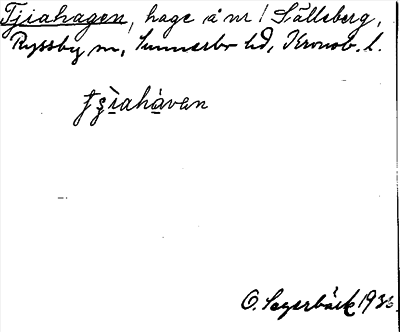 Tjiahagen, hage å nr 1 Sälleberg,
Ryssby sn, Sunnerbo hd, Kronob. l.
tʂìahàvan
O. Sagerbäck 1933.